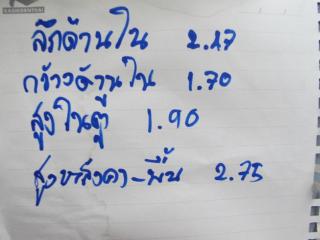 ลึกด้านใน 2.27
กว้างด้านใน 1.70
สูงในตู้ 1.90
สูงหลังคา-พื้น 2.75